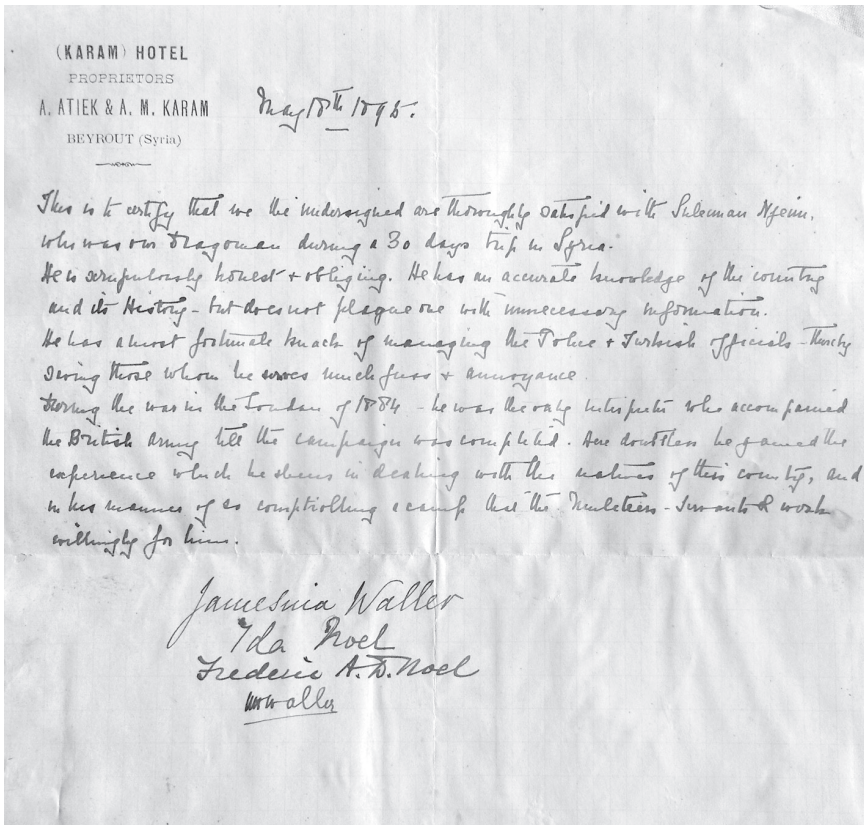 (KARAM) HOTEL
PROPRIETORS
A. ATIEK & A. M. KARAM
BEYROUT (Syria)
May 18th 1895.
This is to certify that we the undersigned are thoroughly satisfied with Suleiman
who was our Dragoman during a 30 days trip in Syria.
He is scrupulously honest + obliging. He has an accurate knowledge of the country
and its History - but does not plague one with unnecessary information.
He has a most fortunate knack of managing the Police + Turkish officials - thereby
saving those whom he serves much fuss + annoyance.
During the war in the Soudan of 1884 - he was the only interpreter who accompanied
the British Army till the campaign was completed. Here doubtless he gained the
experience which he shews in dealing with the natives of this country, and
in his manner of so comptrolling a camp that the Muleteers - Servants & work
willingly for him.
Jamesina Waller
Ida Noel
Frederic A. D. Noel
Waller